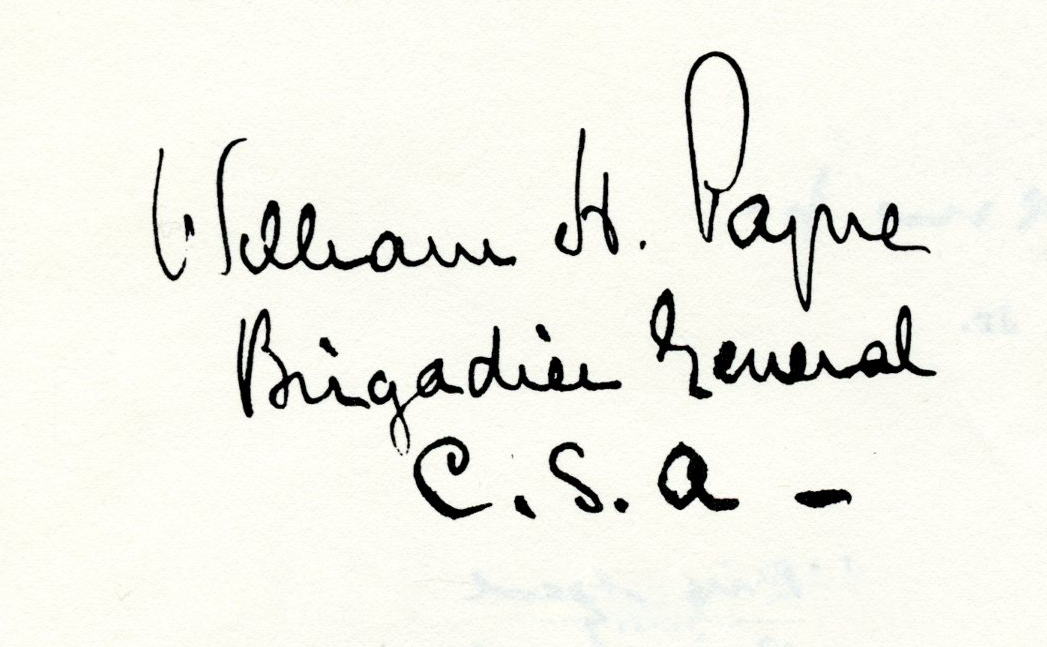 William H. Payne
Brigadier General
C.S.A -